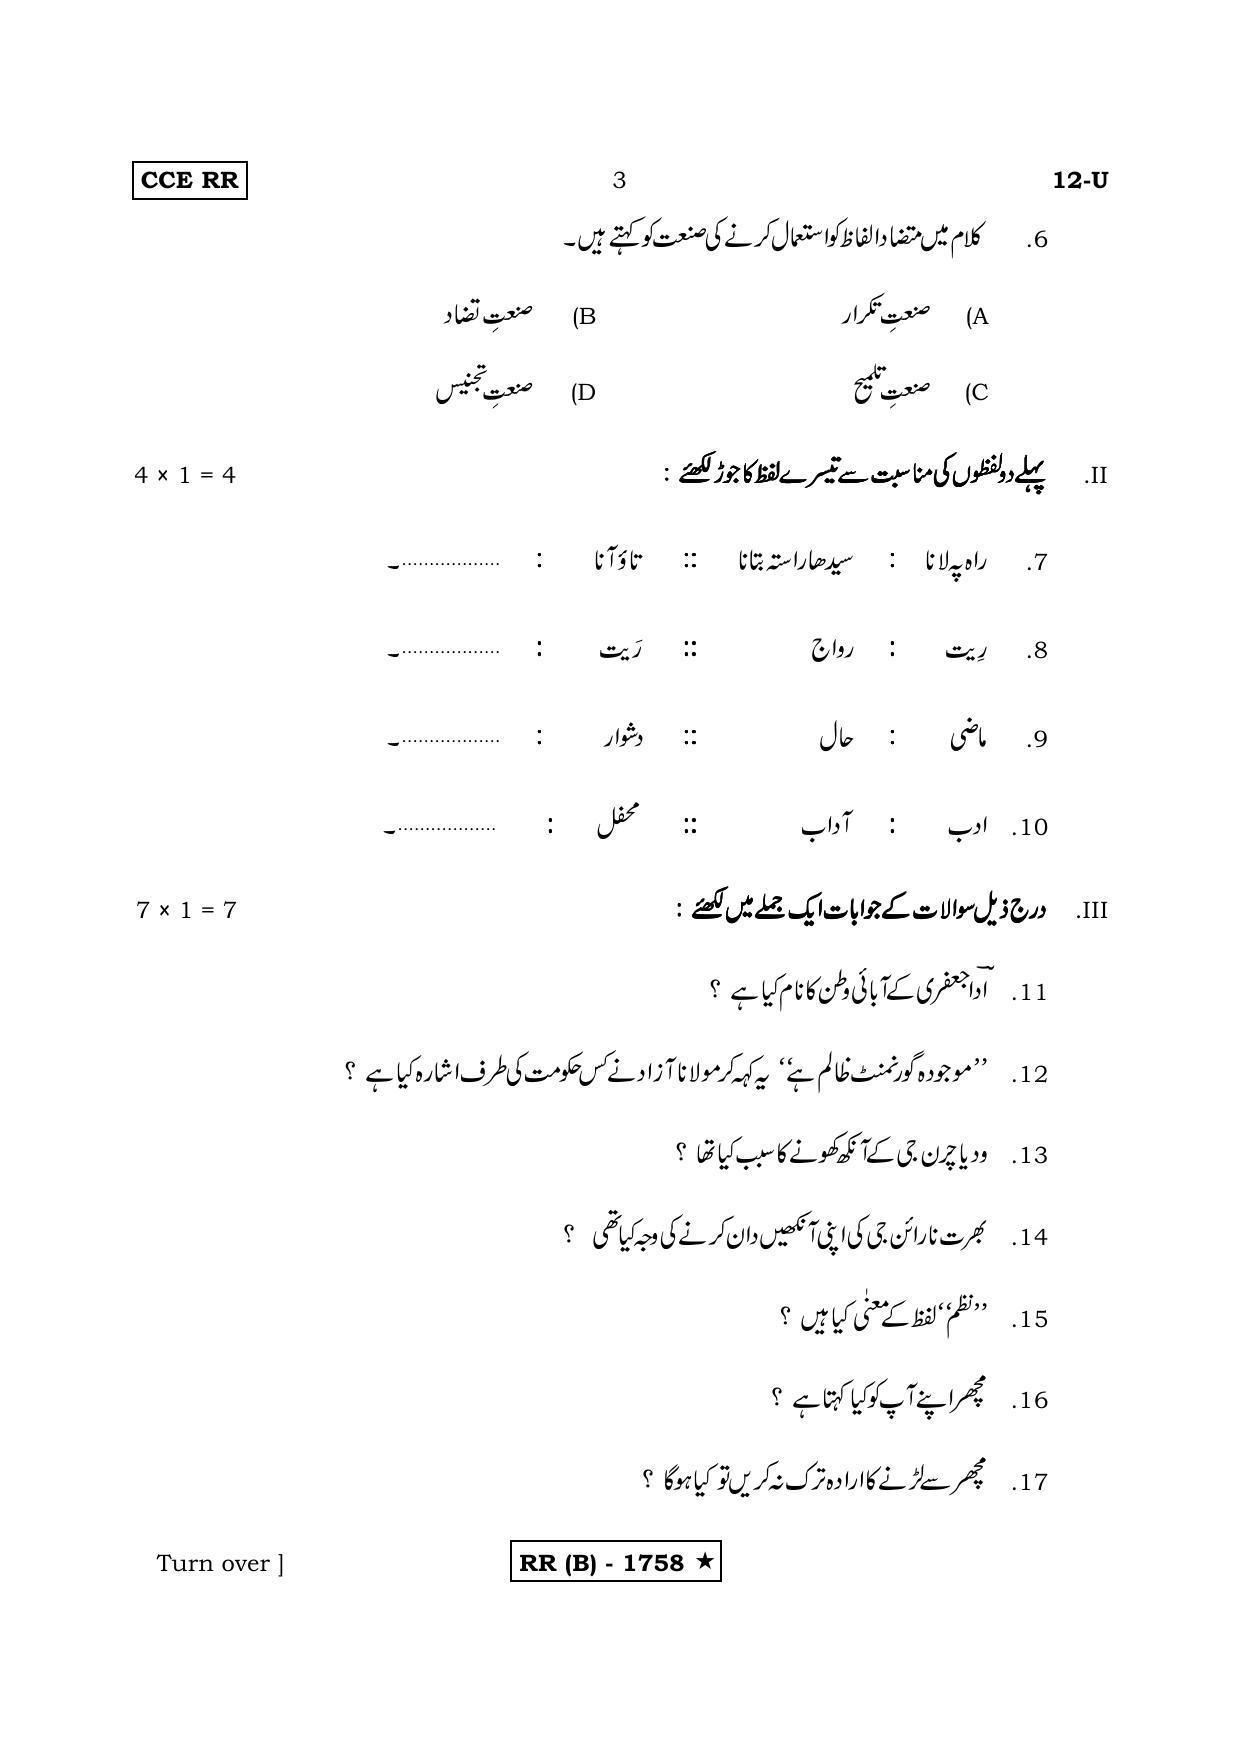 CCE RR 3 12-U
6. کلام میں متضاد الفاظ کو استعمال کرنے کی صنعت کو کہتے ہیں۔
(A صنعتِ تکرار (B صنعتِ تضاد
(C صنعتِ تلمیح (D صنعتِ تجنیس
II. پہلے دو لفظوں کی مناسبت سے تیسرے لفظ کا جوڑ لکھئے : 4 × 1 = 4
7. راہ پہ لانا : سیدھا راستہ بتانا :: تاؤ آنا : ..................۔
8. رِیت : رواج :: رَیت : ..................۔
9. ماضی : حال :: دشوار : ..................۔
10. ادب : آداب :: محفل : ..................۔
III. درج ذیل سوالات کے جوابات ایک جملے میں لکھئے : 7 × 1 = 7
11. اداؔ جعفری کے آبائی وطن کا نام کیا ہے ؟
12. ’’موجودہ گورنمنٹ ظالم ہے‘‘ یہ کہہ کر مولانا آزاد نے کس حکومت کی طرف اشارہ کیا ہے ؟
13. ودیا چرن جی کے آنکھ کھونے کا سبب کیا تھا ؟
14. بھرت نارائن جی کی اپنی آنکھیں دان کرنے کی وجہ کیا تھی ؟
15. ’’نظم‘‘ لفظ کے معنٰی کیا ہیں ؟
16. مچھر اپنے آپ کو کیا کہتا ہے ؟
17. مچھر سے لڑنے کا ارادہ ترک نہ کریں تو کیا ہوگا ؟
Turn over ] RR (B) - 1758 ★